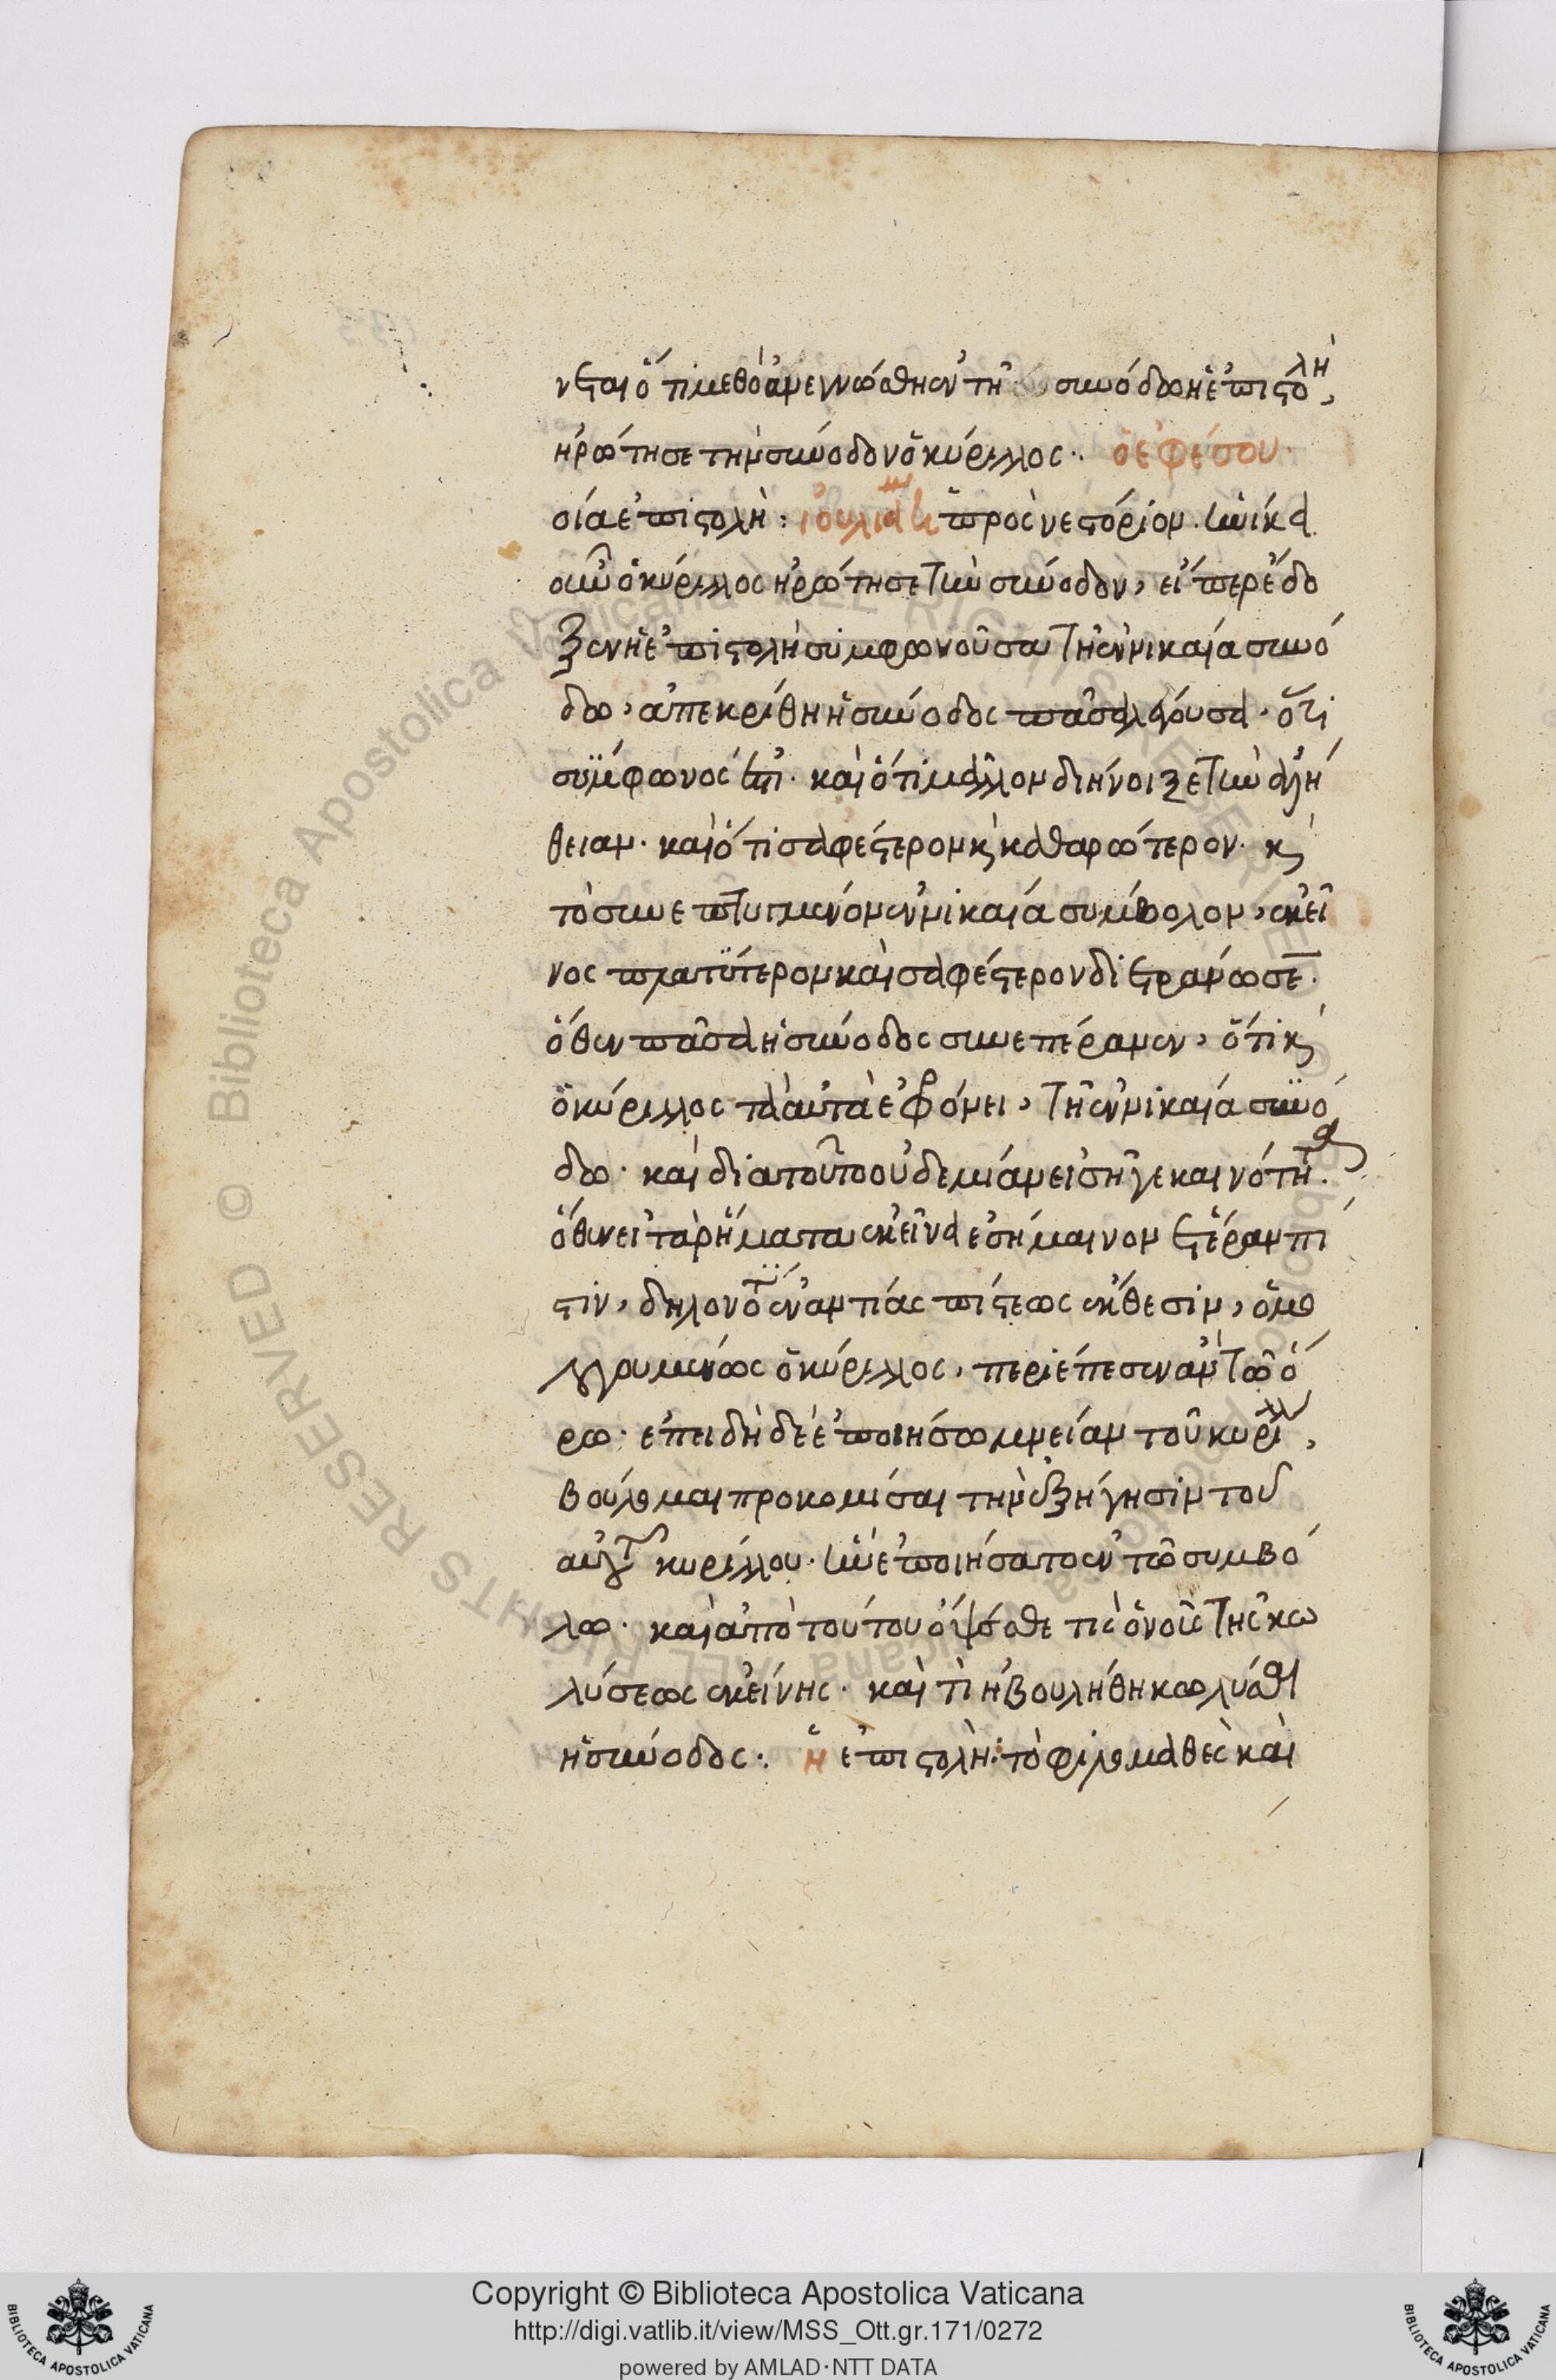 νεται ὅτι μεθ' ὃ ἀνεγνώσθη ἐν τῇ συνόδω ἡ ἐπιστολὴ,
ἠρώτησε τὴν σύνοδον ὁ κύριλλος·
σία ἐπιστολὴ: πρὸς νεστόριον. ἡνίκα
οὖν ὁ κύριλλος ἠρώτησε τὴν σύνοδον, εἴπερ ἔδο
ξεν ἡ ἐπιστολὴ συμφωνοῦσα τῆ ἐν νικαία συνό
δω, ἀπεκρίθη ἡ σύνοδος πᾶσα λέγουσα· ὅτι
σύμφωνός ἐστι. καὶ ὅτι μᾶλλον διήνοιξε τὴν ἀλή
θειαν· καὶ ὅτι σαφέστερον καὶ καθαρώτερον· καὶ
τὸ συνεπτυγμένον ἐν νικαία σύμβολον, ἐκεῖ
νος πλατύτερον καὶ σαφέστερον διετράνωσε·
ὅθεν πᾶσα ἡ σύνοδος συνεπέρανεν, ὅτι καὶ
ὁ κύριλλος τὰ αὐτὰ ἐφρόνει, τῆ ἐν νικαία συνό
δω· καὶ διατοῦτο οὐδεμίαν εἰσῆγε καινότητα.
ὅθεν εἰ τὰ ῥήματα ἐκεῖνα ἐσήμαινον ἑτέραν πί
στιν, δηλονότι ἐναντίας πίστεως ἔκθεσιν, ὁμο
λογουμένως ὁ κύριλλος, περιέπεσεν ἂν τῶ ὅ
ρω· ἐπειδὴ δὲ ἐποιησάμην μνείαν τοῦ κυρίλλου,
βούλομαι προκομίσαι τὴν ἐξήγησιν τοῦ
αὐτοῦ κυρίλλου· ἣν ἐποιήσατο ἐν τῶ συμβό
λω· καὶ ἀπὸ τούτου ὄψεσθε τίς ὁ νοῦς τῆς κω
λύσεως ἐκείνης· καὶ τί ἠβουλήθη κωλύσαι
ἡ σύνοδος: ἡ ἐπιστολὴ: τὸ φιλομαθὲς καὶ
Copyright © Biblioteca Apostolica Vaticana
http://digi.vatlib.it/view/MSS_Ott.gr.171/0272
powered by AMLAD·NTT DATA